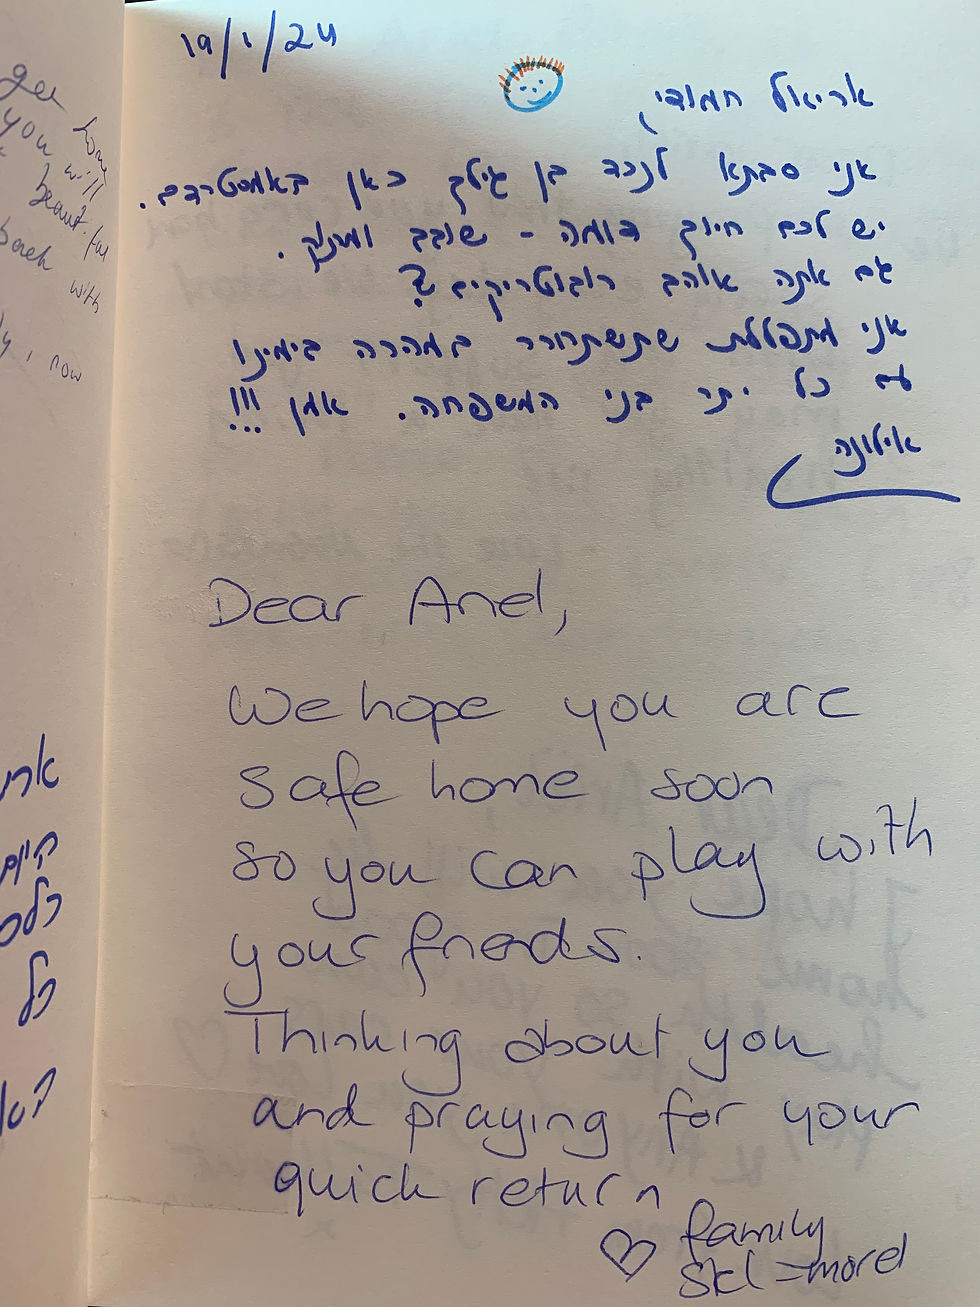 get home
you will
beautiful
back with
now
19/1/24
אריאל חמודי,
אני סבתא לנכד בן גילך כאן באמסטרדם.
יש לכם חיוך דומה - שובב ומתוק.
גם אתה אוהב רובוטריקים?
אני מתפללת שתשתחרר במהרה בימינו
עם כל יתר בני המשפחה. אמן!!!
אילונה
Dear Ariel,
We hope you are
safe home soon
so you can play with
your friends.
Thinking about you
and praying for your
quick return
family
כל